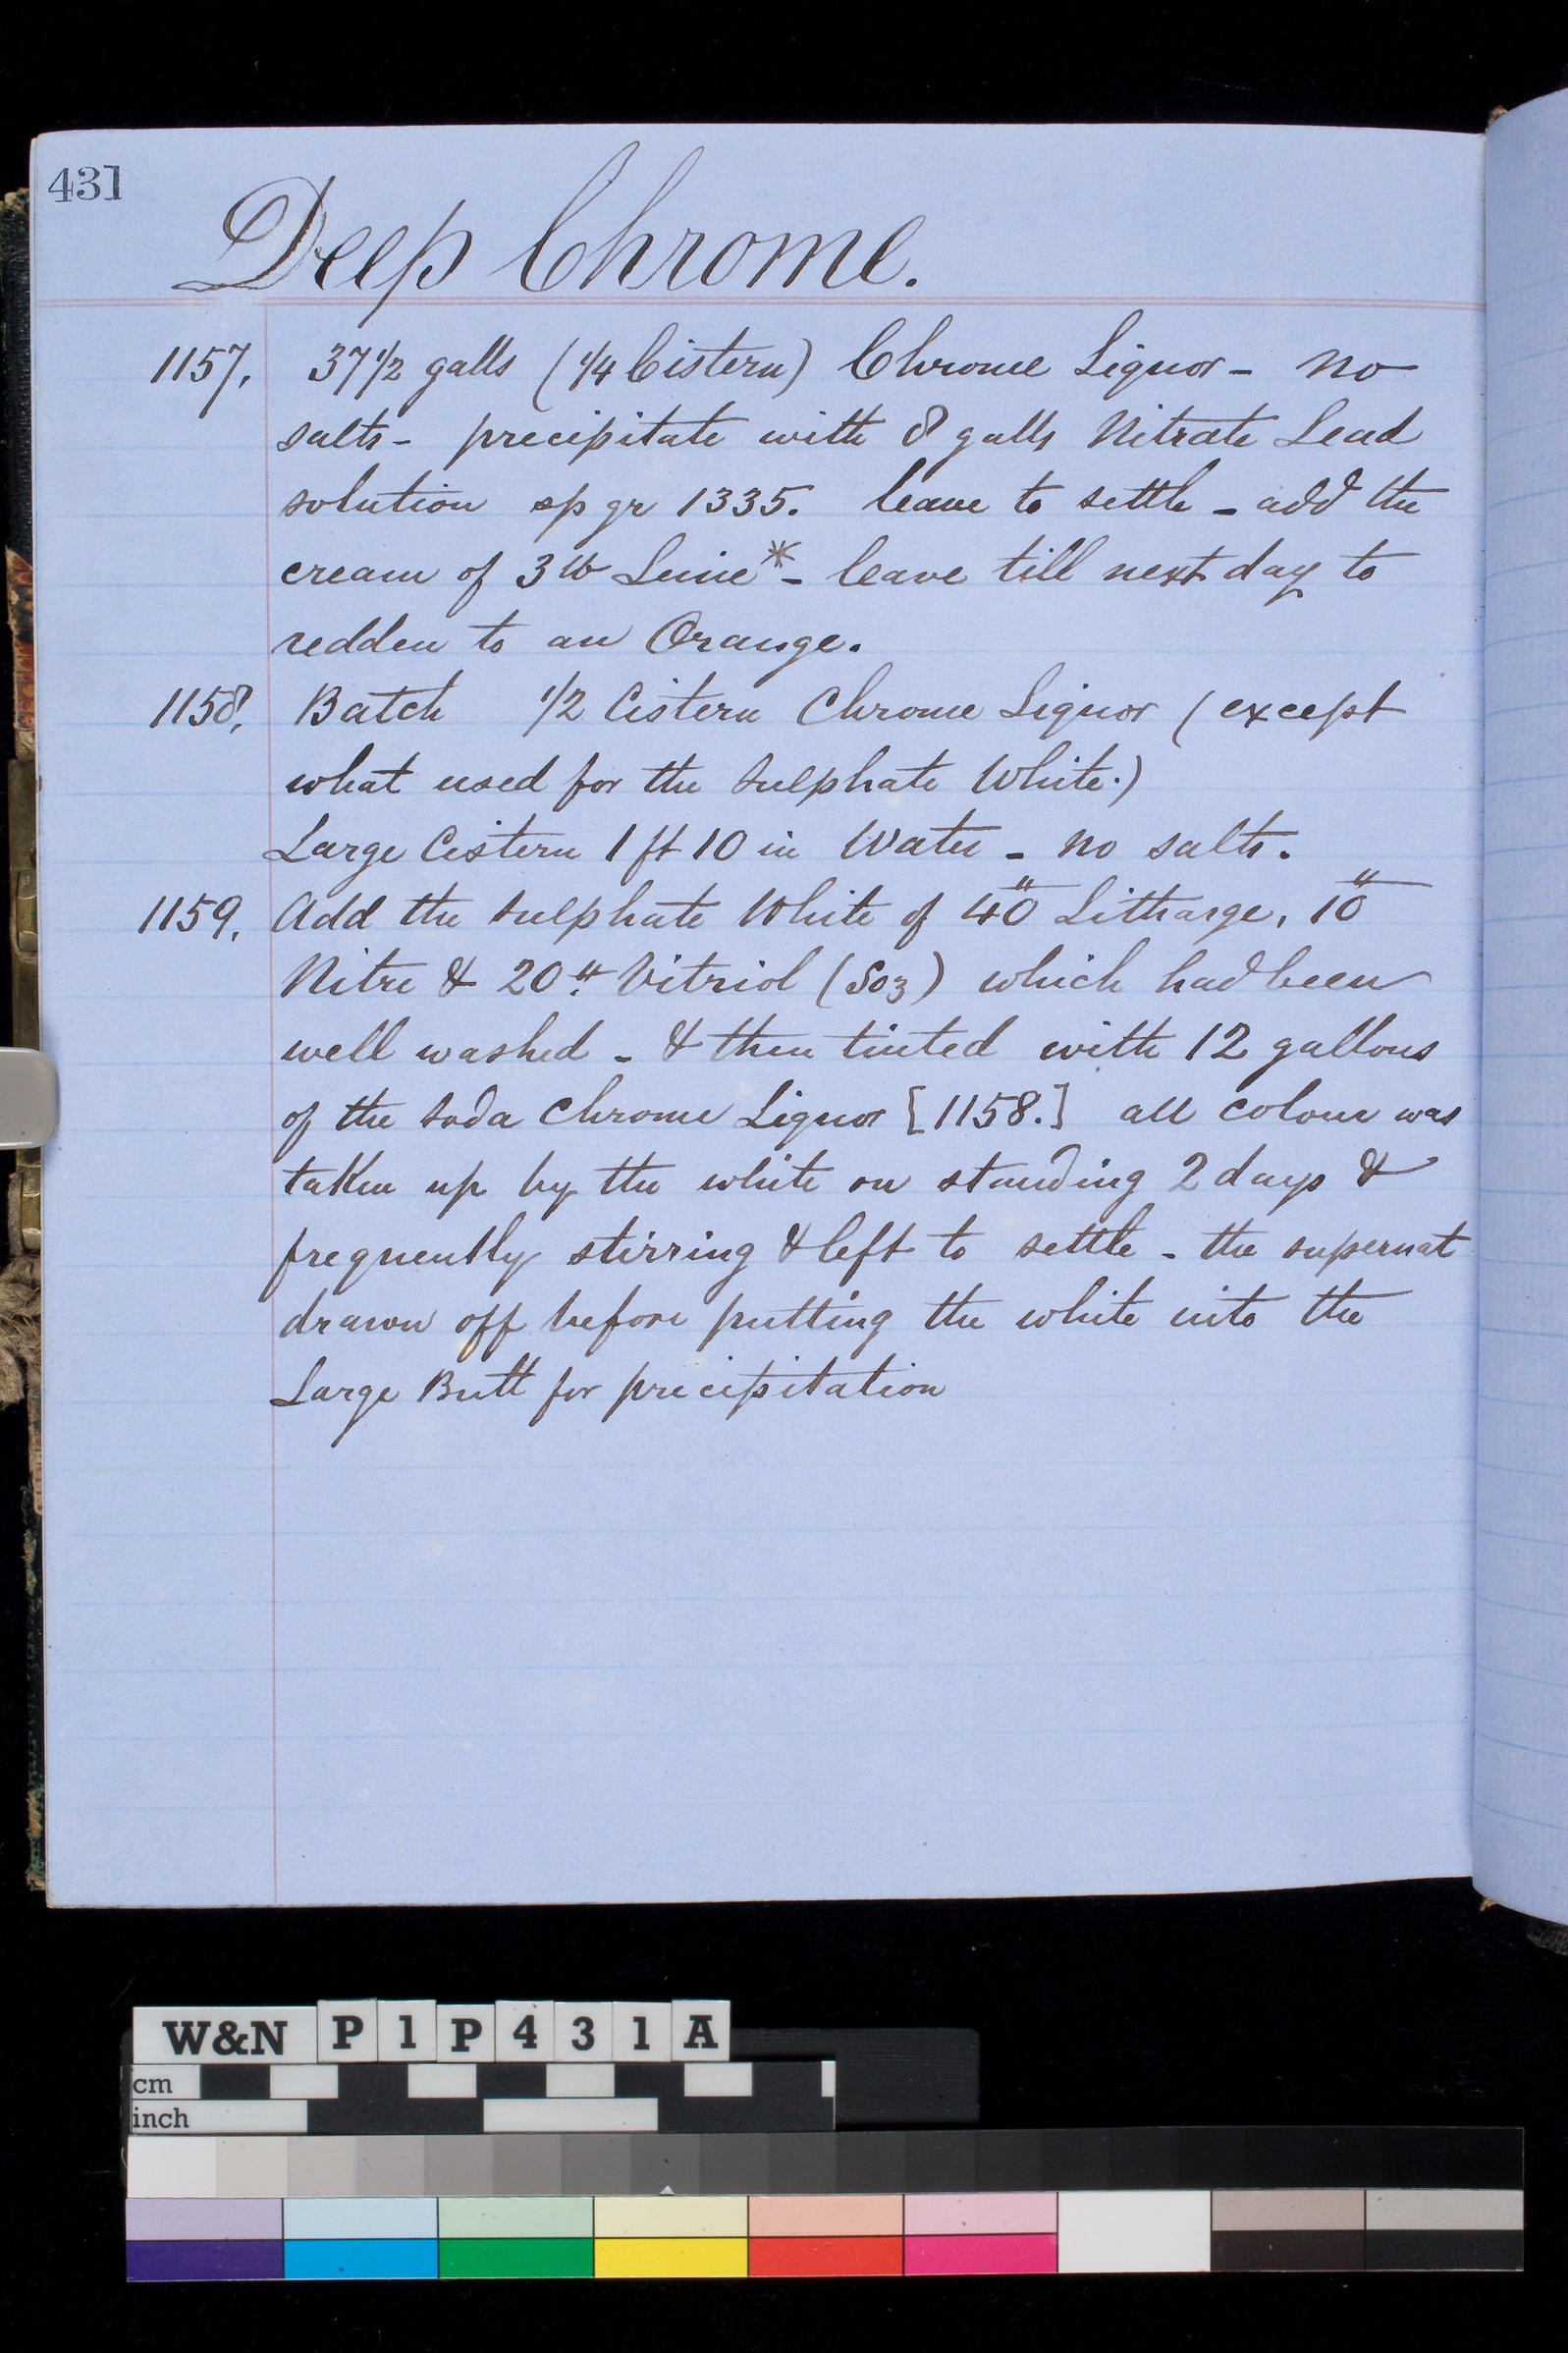 431
Deep Chrome.
1157. 37 1/2 galls (1/4 Cistern) Chrome Liquor - no
salts - precipitate with 8 galls Nitrate Lead
solution sp gr 1335. leave to settle - add the
cream of 3 lb Lime* - leave till next day to
redden to an Orange.
1158. Batch 1/2 Cistern Chrome Liquor (except
what used for the Sulphate White.)
Large Cistern 1 ft 10 in Water - no salts.
1159. Add the Sulphate White of 40" Litharge, 10"
Nitre & 20" Vitriol (So3) which had been
well washed - & then tinted with 12 gallons
of the Soda Chrome Liquor [1158.] all colour was
taken up by the white on standing 2 days &
frequently stirring & left to settle - the supernat
drawn off before putting the white into the
Large Butt for precipitation
W&N P1P431A
cm
inch